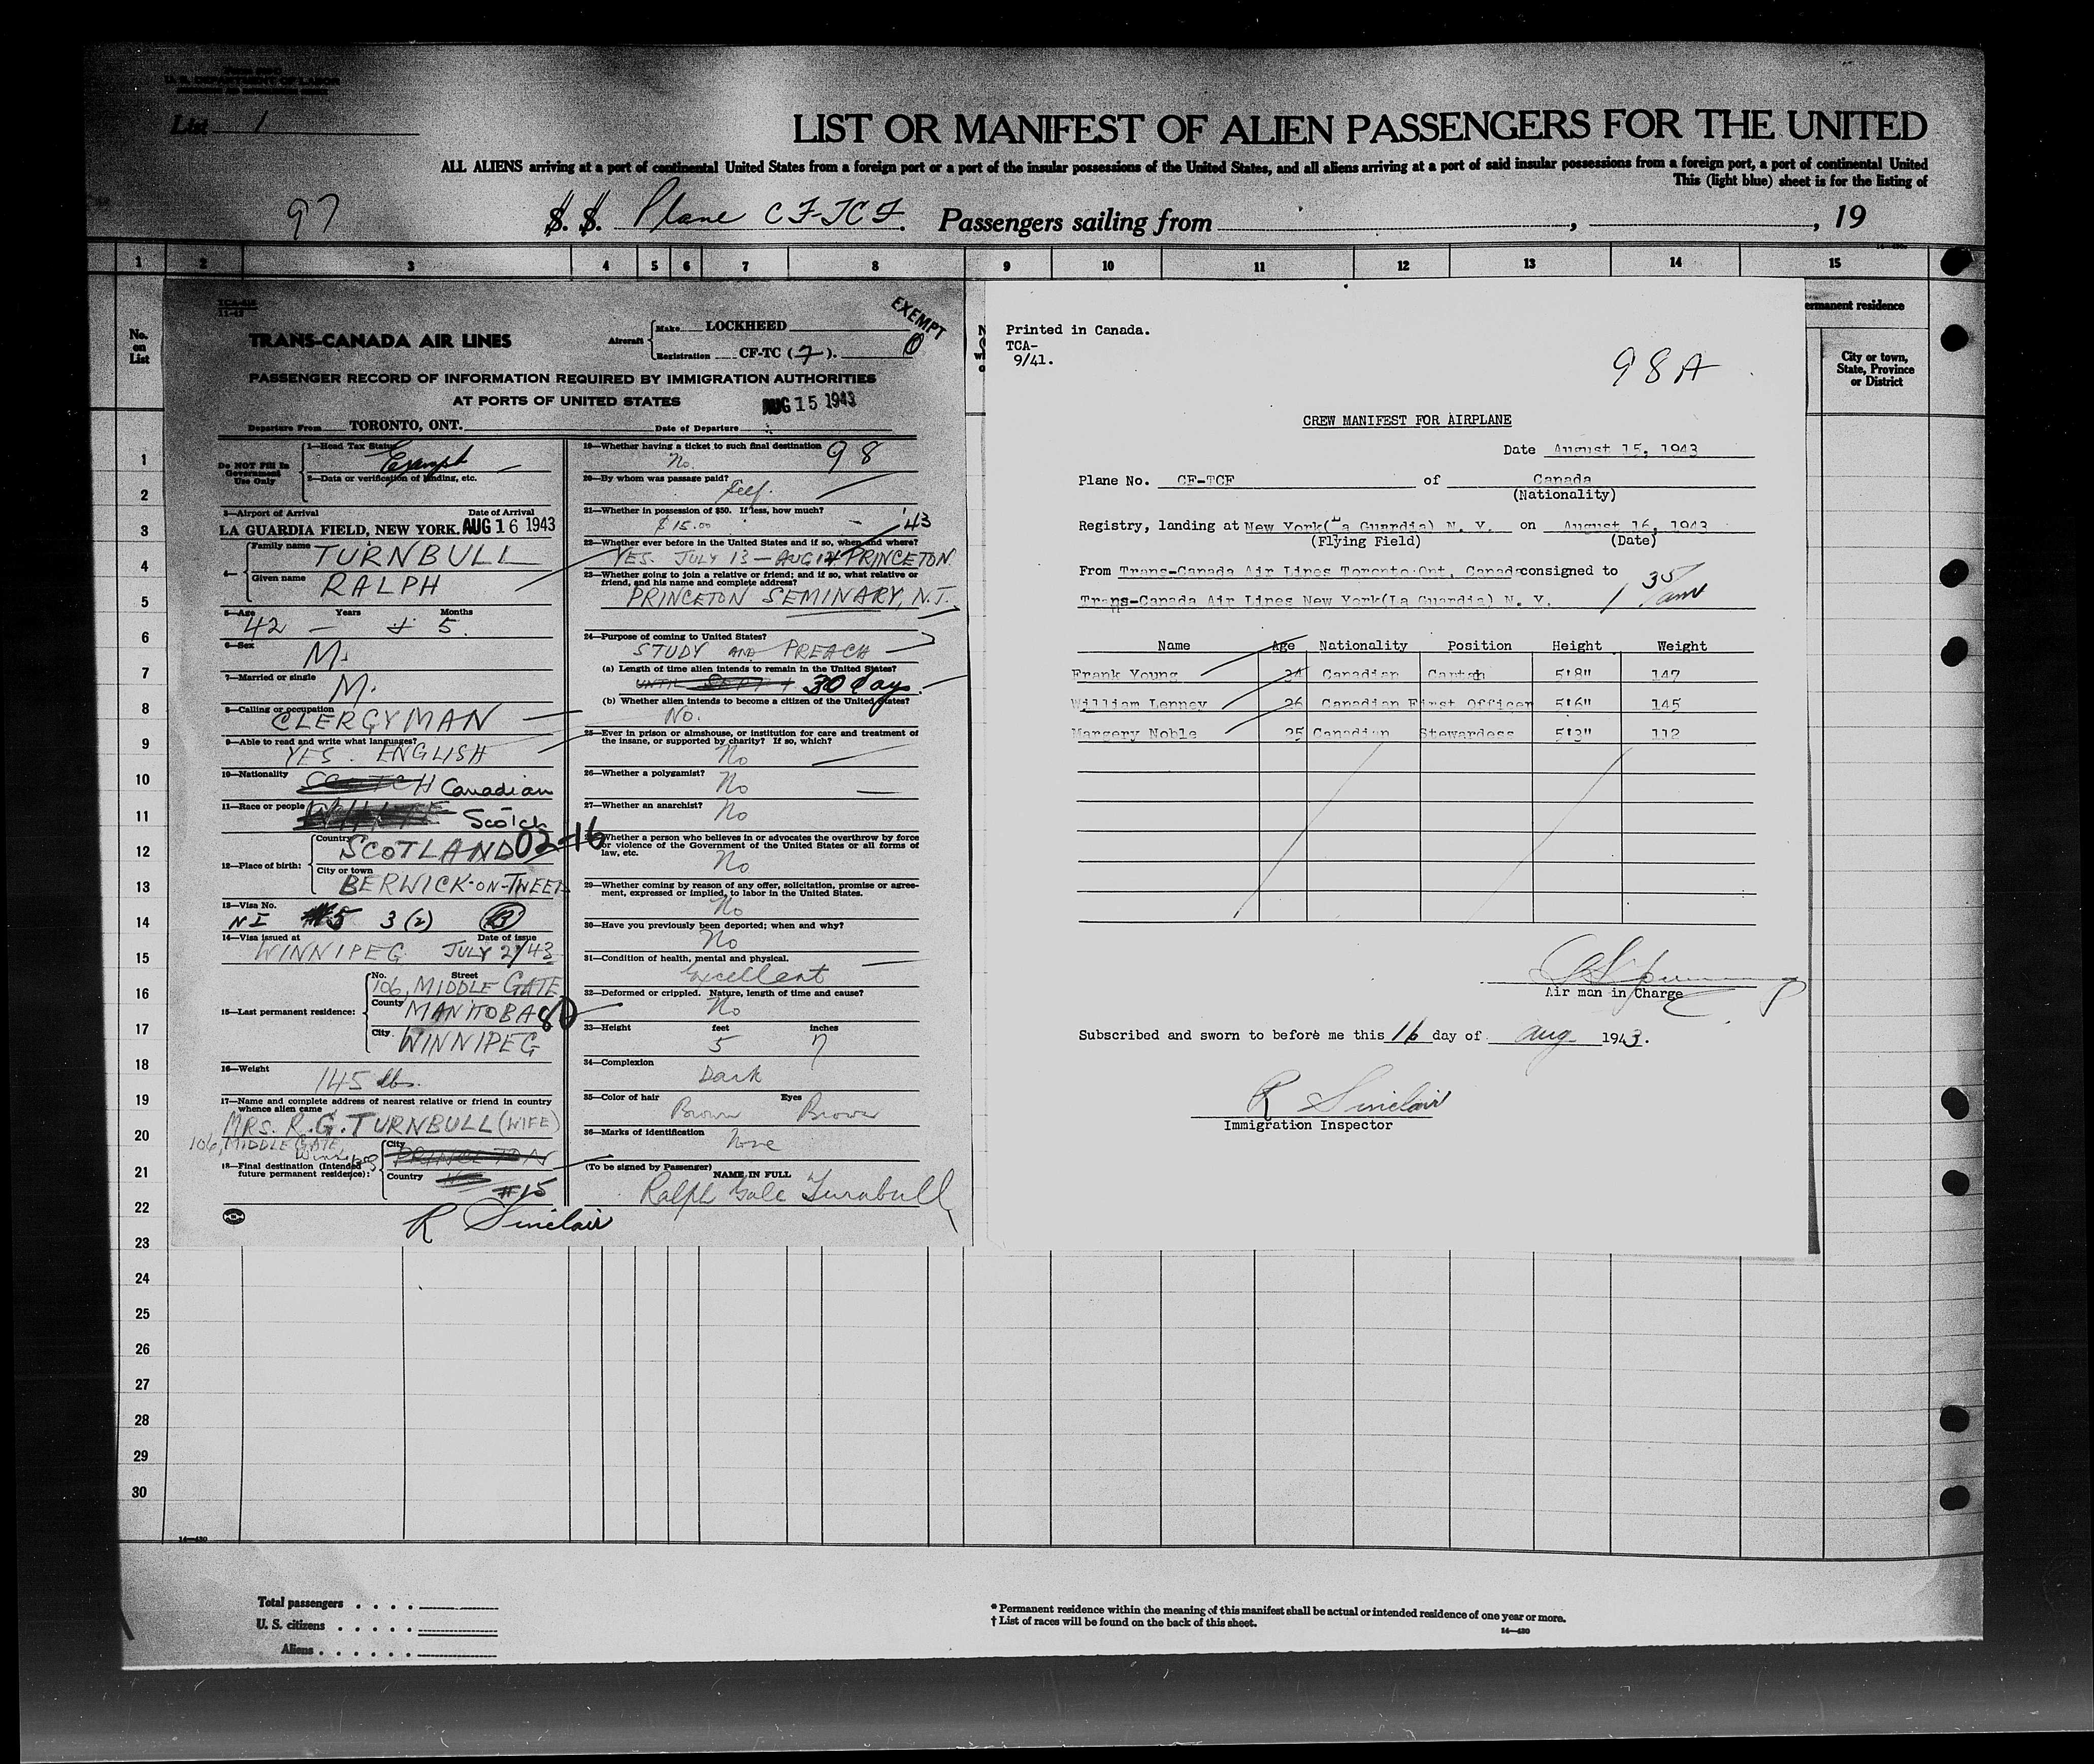 U. S. DEPARTMENT OF LABOR
List 1
LIST OR MANIFEST OF ALIEN PASSENGERS FOR THE UNITED
ALL ALIENS arriving at a port of continental United States from a foreign port or a port of the insular possessions of the United States, and all aliens arriving at a port of said insular possessions from a foreign port, a port of continental United
This (light blue) sheet is for the listing of
97
S. S. Plane CF-TCF. Passengers sailing from , , 19
1 2 3 4 5 6 7 8 9 10 11 12 13 14 15
No. on List
ermanent residence
City or town, State, Province or District
TCA-
TRANS-CANADA AIR LINES
Aircraft
Make LOCKHEED
Registration CF-TC (7).
EXEMPT
0
PASSENGER RECORD OF INFORMATION REQUIRED BY IMMIGRATION AUTHORITIES
AT PORTS OF UNITED STATES
AUG 15 1943
Departure From TORONTO, ONT. Date of Departure
Do NOT Fill In Government Use Only
1—Head Tax Status
Exempt
2—Data or verification of landing, etc.
3—Airport of Arrival Date of Arrival
LA GUARDIA FIELD, NEW YORK. AUG 16 1943
4—
Family name TURNBULL
Given name RALPH
5—Age Years Months
42 5.
6—Sex
M.
7—Married or single
M.
8—Calling or occupation
CLERGYMAN
9—Able to read and write what languages?
YES. ENGLISH
10—Nationality
SCOTCH Canadian
11—Race or people
WHITE Scotch
12—Place of birth:
Country
SCOTLAND 02-16
City or town
BERWICK-ON-TWEED
13—Visa No.
NI 5 3(2) B
14—Visa issued at Date of issue
WINNIPEG JULY 21/43
15—Last permanent residence:
No. Street
106, MIDDLE GATE
County
MANITOBA 80
City
WINNIPEG
16—Weight
145 lbs.
17—Name and complete address of nearest relative or friend in country
whence alien came
MRS. R.G. TURNBULL (WIFE)
106, MIDDLE GATE,
Winnipeg
18—Final destination (Intended future permanent residence):
City
PRINCETON
Country
#15
R Sinclair
19—Whether having a ticket to such final destination
No. 98
20—By whom was passage paid?
Self.
21—Whether in possession of $50. If less, how much?
$15.00 '43
22—Whether ever before in the United States and if so, when and where?
YES. JULY 13 — AUG 14 PRINCETON
23—Whether going to join a relative or friend; and if so, what relative or
friend, and his name and complete address?
PRINCETON SEMINARY, N.J.
24—Purpose of coming to United States?
STUDY AND PREACH
(a) Length of time alien intends to remain in the United States?
UNTIL SEPT 30 days.
(b) Whether alien intends to become a citizen of the United States?
No.
25—Ever in prison or almshouse, or institution for care and treatment of
the insane, or supported by charity? If so, which?
No
26—Whether a polygamist?
No
27—Whether an anarchist?
No
Whether a person who believes in or advocates the overthrow by force
or violence of the Government of the United States or all forms of
law, etc.
No
29—Whether coming by reason of any offer, solicitation, promise or agree-
ment, expressed or implied, to labor in the United States.
No
30—Have you previously been deported; when and why?
No
31—Condition of health, mental and physical.
Excellent
32—Deformed or crippled. Nature, length of time and cause?
No
33—Height feet inches
5 7
34—Complexion
Dark
35—Color of hair Eyes
Brown Brown
36—Marks of identification
None
(To be signed by Passenger)
NAME IN FULL
Ralph Gale Turnbull
Printed in Canada.
TCA-
9/41.
98A
CREW MANIFEST FOR AIRPLANE
Date August 15, 1943
Plane No. CF-TCF of Canada
(Nationality)
Registry, landing at New York(La Guardia) N. Y. on August 16, 1943
(Flying Field) (Date)
From Trans-Canada Air Lines Toronto Ont, Canada consigned to
Trans-Canada Air Lines New York(La Guardia) N. Y.
1 35 am
Name Age Nationality Position Height Weight
Frank Young 34 Canadian Captain 5'8" 147
William Lenney 26 Canadian First Officer 5'6" 145
Margery Noble 25 Canadian Stewardess 5'3" 112
Air man in Charge
Subscribed and sworn to before me this 16 day of Aug 1943.
R Sinclair
Immigration Inspector
1
2
3
4
5
6
7
8
9
10
11
12
13
14
15
16
17
18
19
20
21
22
23
24
25
26
27
28
29
30
14—430
Total passengers
U. S. citizens
Aliens
* Permanent residence within the meaning of this manifest shall be actual or intended residence of one year or more.
† List of races will be found on the back of this sheet.
14—430